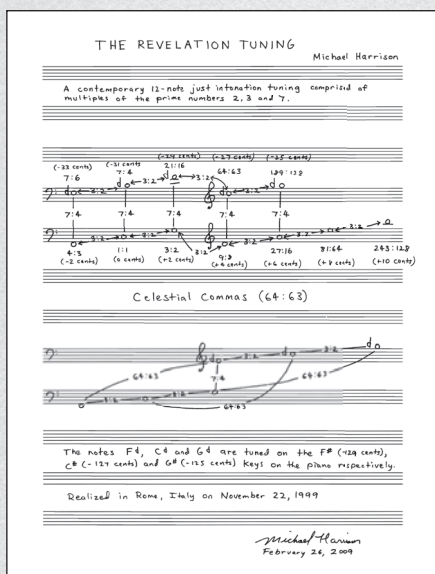 THE REVELATION TUNING
Michael Harrison
A contemporary 12-note just intonation tuning comprised of
multiples of the prime numbers 2, 3 and 7.
(-33 cents) (-31 cents) (-29 cents) (-27 cents) (-25 cents)
7:6 7:4 21:16 64:63 189:128
3:2 3:2 3:2 3:2
7:4 7:4 7:4 7:4 7:4
3:2 3:2 3:2 3:2 3:2 3:2
4:3 1:1 3:2 9:8 27:16 81:64 243:128
(-2 cents) (0 cents) (+2 cents) (+4 cents) (+6 cents) (+8 cents) (+10 cents)
Celestial Commas (64:63)
3:2 3:2
64:63 7:4 64:63
3:2 3:2
64:63
The notes Fd, Cd and Gd are tuned on the F# (-129 cents),
C# (-127 cents) and G# (-125 cents) keys on the piano respectively.
Realized in Rome, Italy on November 22, 1999
Michael Harrison
February 26, 2009